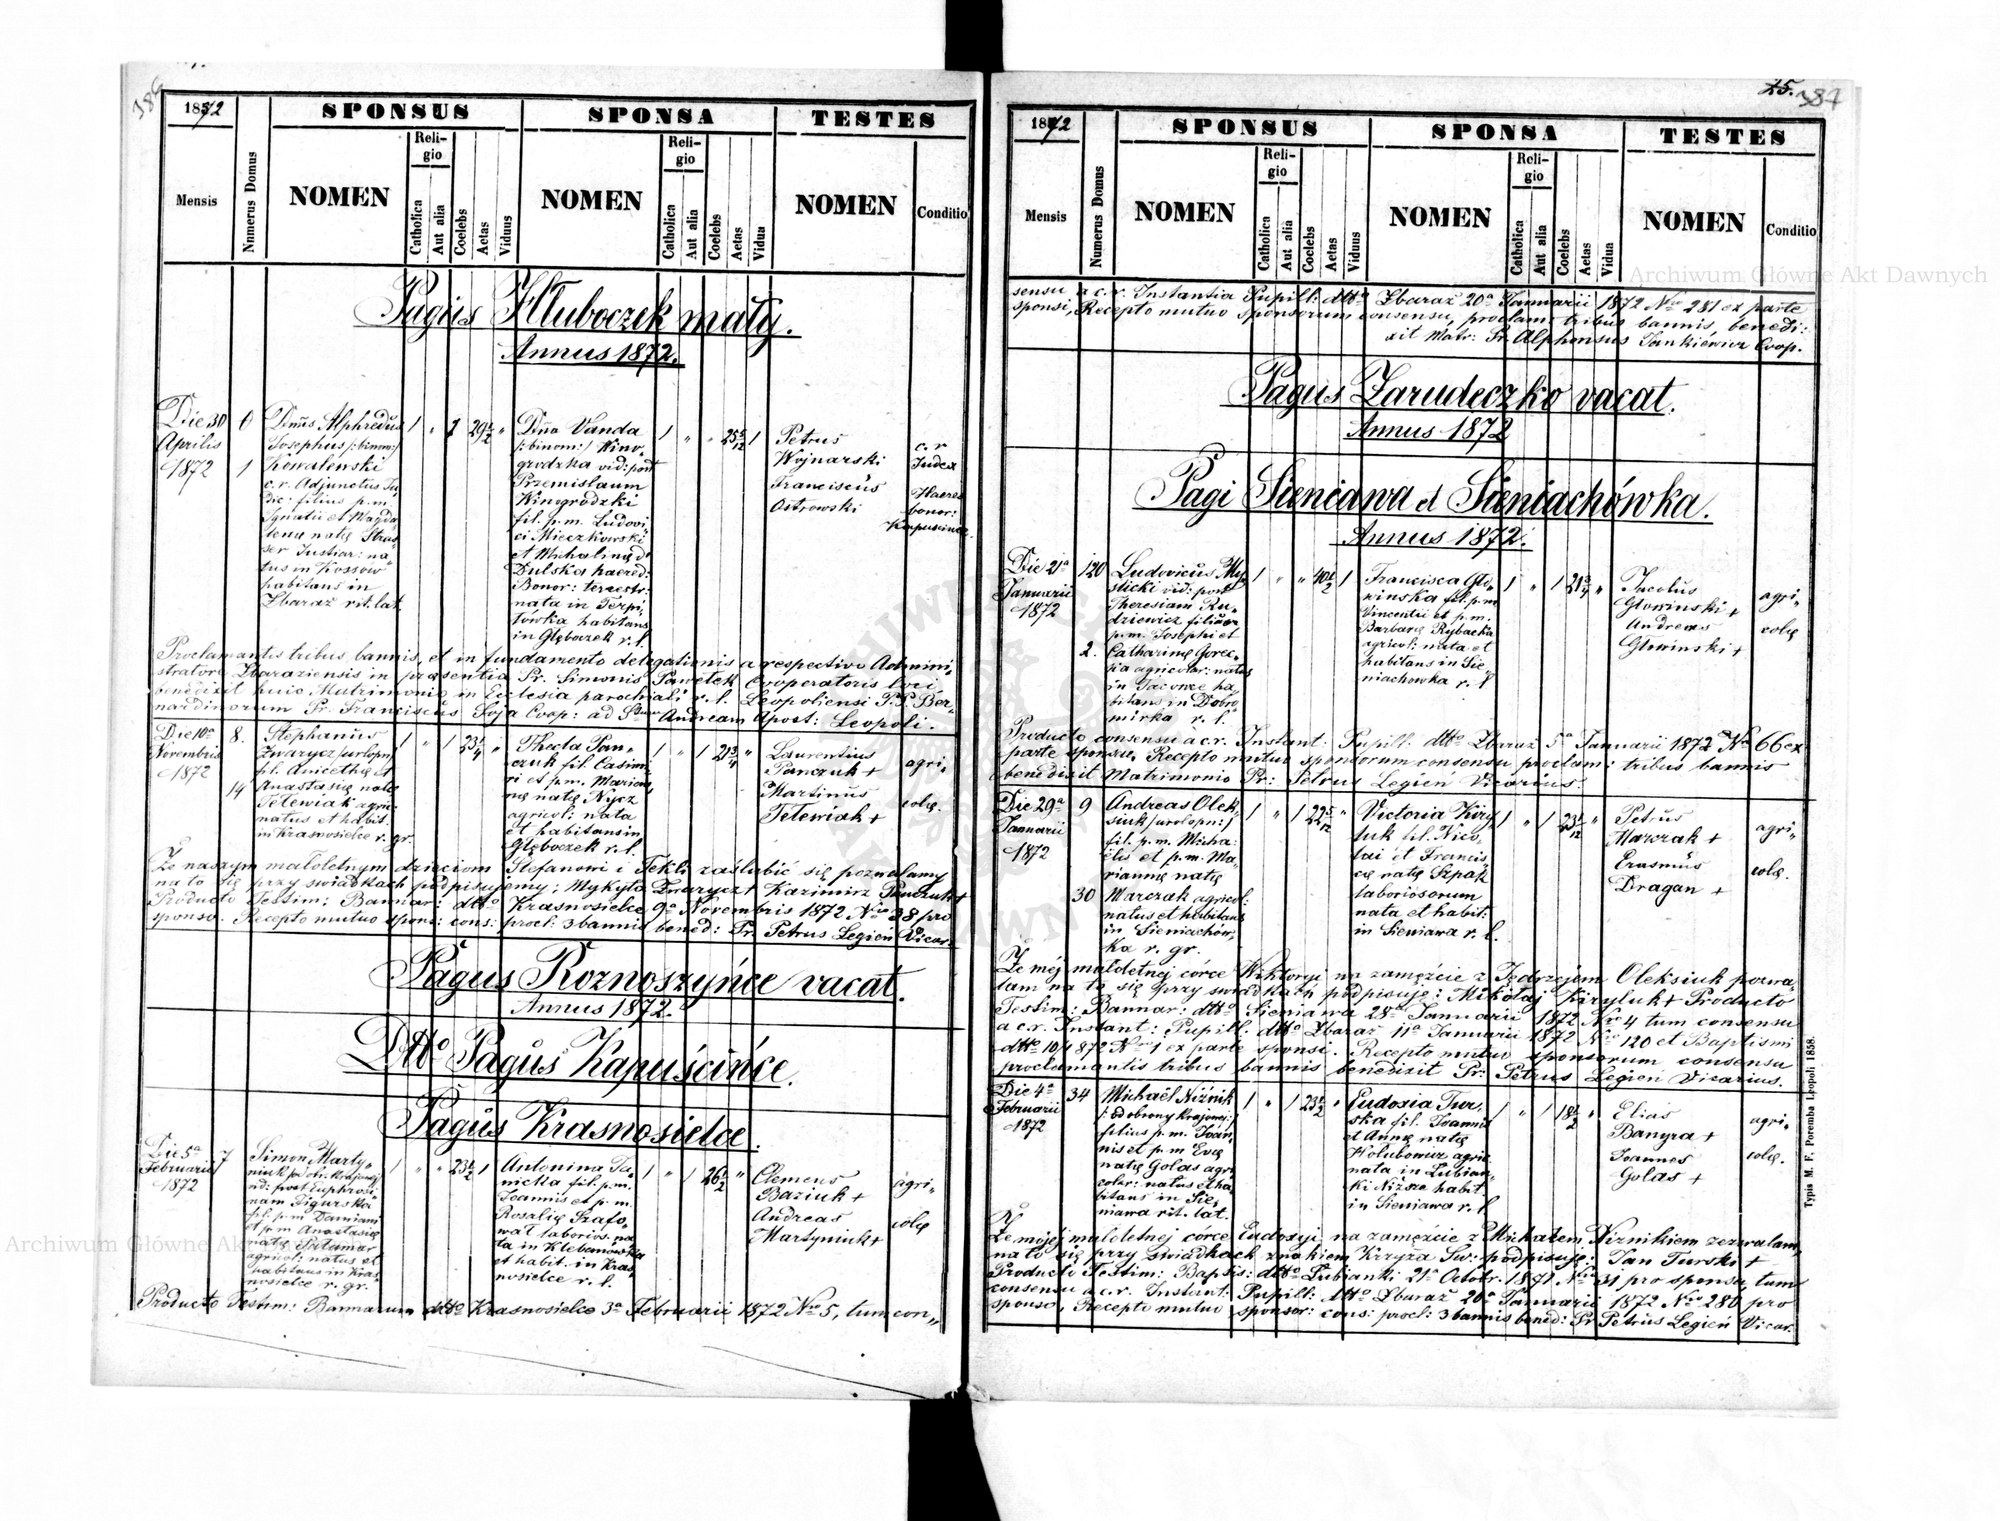 386
1872
SPONSUS
SPONSA
TESTES
Mensis
Numerus Domus
NOMEN
Religio
Catholica
Aut alia
Coelebs
Aetas
Viduus
NOMEN
Religio
Catholica
Aut alia
Coelebs
Aetas
Vidua
NOMEN
Conditio
Pagus Hłuboczek mały.
Annus 1872.
Die 30
Aprilis
1872
0
1
Dnus Alphredus
Josephus /:binom:/
Kowalewski
c. r. Adjunctus Ju-
dic: filius p.m.
Ignatii et Magda-
lenę natę Stras-
ser Justiar: na-
tus in Kossow
habitans in
Zbaraż rit. lat.
Dna Vanda
/:binom:/ Wino-
grodzka vid: post
Przemisłaum
Winogrodzki
fil. p. m. Ludovi-
ci Mieczkowski
et Michalinę de
Dulska haered:
Bonor: terrestr:
nata in Terpi-
łówka habitans
in Głęboczek r. l.
Petrus
Wojnarski
Franciscus
Ostrowski
c. r
Judex
Haeres
bonor:
Kapuscince.
Proclamantis tribus bannis, et in fundamento delegationis a respectivo Admini-
stratore Zbaraziensis in praesentia Pr. Simonis Pawełek Cooperatoris loci
benedixit huic Matrimonio in Ecclesia parochiali r. l. Leopoliensi P. P. Ber-
nardinorum Pr. Franciscus Soja Coop: ad Stum Andream Apost: Leopoli.
Die 10a
Novembris
1872
8.
14
Stephanus
Zwarycz /urlopn/
fil. Anicethę et
Anastasię natę
Tetewiak agric.
natus et habit.
in Krasnosielce r. gr.
23 1/4
Thecla Pan-
czuk fil. Casimi-
ri et p.m. Marian-
nę natę Nycz
agricol: nata
et habitans in
Głęboczek r. l.
21 3/4
Laurentius
Panczuk +
Martinus
Tetewiak +
agri-
colę.
Że naszym małoletnym dzieciom Stefanowi i Tekli zaślubić się pozwalamy
na to się przy świadkach podpisujemy: Mykyta Zwarycz + Kazimirz Panczuk +
Producto Testim: Bannar: dtto Krasnosielce 9a Novembris 1872 Nro 38 pro
sponso. Recepto mutuo spons: cons: procl: 3 bannis bened: Pr. Petrus Legień Vicar.
Pagus Roznoszyńce vacat.
Annus 1872.
Dtto Pagus Kapuścińce.
Pagus Krasnosielce.
Die 5a
Februarii
1872
7
Simon Marty-
niuk
vid: post Euphrosi-
nam Figurska
fil. p.m Damiani
et p.m Anastasię
natę
agricol: natus et
habitans in Kras-
nosielce r. gr.
23 1/2
Antonina Ja-
nicka fil. p.m.
Joannis et p.m.
Rosalię Szafo-
wał laborios. na-
ta in Klebanówka
et habit. in Kras-
nosielce r. l.
26 1/2
Clemens
Baziuk +
Andreas
Martyniuk +
agri-
colę
Producto Testim: Bannarum dtto Krasnosielce 3a Februarii 1872 No 5, tum con-
25. 387
1872
SPONSUS
SPONSA
TESTES
Mensis
Numerus Domus
NOMEN
Religio
Catholica
Aut alia
Coelebs
Aetas
Viduus
NOMEN
Religio
Catholica
Aut alia
Coelebs
Aetas
Vidua
NOMEN
Conditio
sensu a c. r. Instantia Pupill: dtto Zbaraż 20a Januarii 1872 Nro 281 ex parte
sponsi, Recepto mutuo sponsorum consensu, proclam: tribus bannis, benedi-
xit Matr: Pr. Alphonsus Jankiewicz Coop.
Pagus Zarudeczko vacat.
Annus 1872
Pagi Sieniawa et Sieniachówka.
Annus 1872.
Die 21a
Januarii
1872
120
2.
Ludovicus My-
slicki vid: post
Theresiam Ru-
dziewicz filius
p.m. Josephi et
Catharinę Gorec-
ka agricolar: natus
in Jacowce ha-
bitans in Dobro-
mirka r. l.
40 1/2
Francisca Gło-
winska fil. p.m
Vincentii et p.m.
Barbarę Rybacka
agricol: nata et
habitans in Sie-
niachowka r. l
21 3/4
Jacobus
Głowinski +
Andreas
Głowinski +
agri-
colę
Producto consensu a c. r. Instant: Pupill: dtto Zbaraż 5a Januarii 1872 No 66 ex
parte sponsi, Recepto mutuo sponsorum consensu proclam: tribus bannis
benedixit Matrimonio Pr: Petrus Legień Vicarius.
Die 29a
Januarii
1872
9
30
Andreas Olek-
siuk /urlopn:/
fil. p.m. Micha-
elis et p.m. Ma-
riannę natę
Marczak agricol:
natus et habitans
in Sieniachów-
ka r. gr.
22 5/12
Victoria Kiry-
luk fil. Nico-
lai et Francis-
cę natę Szpak
laboriosorum
nata et habit:
in Sieniawa r. l.
23 1/12
Petrus
Marczak +
Erasmus
Dragan +
agri-
colę.
Że méj małoletnéj córce Wiktoryi na zamęzcie z Jędrzejem Oleksiuk pozwa-
lam na to się przy świadkach podpisuję: Mikołaj Kiryluk + Producto
Testim: Bannar: dtto Sieniawa 28a Januarii 1872 Nro 4 tum consensu
a c. r. Instant: Pupill. dtto Zbaraż 11a Januarii 1872 Nro 120 et Baptismi
dtto 10/1 872 Nro 1 ex parte sponsi. Recepto mutuo sponsorum consensu
proclamantis tribus bannis benedixit Pr: Petrus Legień Vicarius.
Die 4a
Februarii
1872
34
Michaël Niżnik
/:od obrony krajowej:/
filius p.m. Joan-
nis et p.m Evę
natę Golas agri-
color: natus et ha-
bitans in Sie-
niawa rit. lat.
23 1/2
Eudoxia Tur-
ska fil. Joannis
et Annę natę
Hołubowicz agric.
nata in Lubian-
ki Niższe habit.
in Sieniawa r. l
18 1/2
Elias
Banyra +
Joannes
Golas +
agri-
colę.
Że mojéj małoletnéj córce Eudoxyi na zamęzcie z Michałem Niżnikiem zezwalam,
na to się przy świadkach znakiem Krzyża Św: podpisuję: Jan Turski +
Producto Testim: Baptis: dtto Lubianki 21a Octobr. 1871 Nro 31 pro sponsa, tum
consensu a c. r. Instant: Pupill: dtto Zbaraż 20a Januarii 1872 Nro 280 pro
sponso, Recepto mutuo sponsor: cons: procl: 3 bannis bened: Pr Petrus Legień Vicar.
Typis M. F. Poremba Leopoli 1858.
Archiwum Główne Akt Dawnych
Archiwum Główne Akt Dawnych